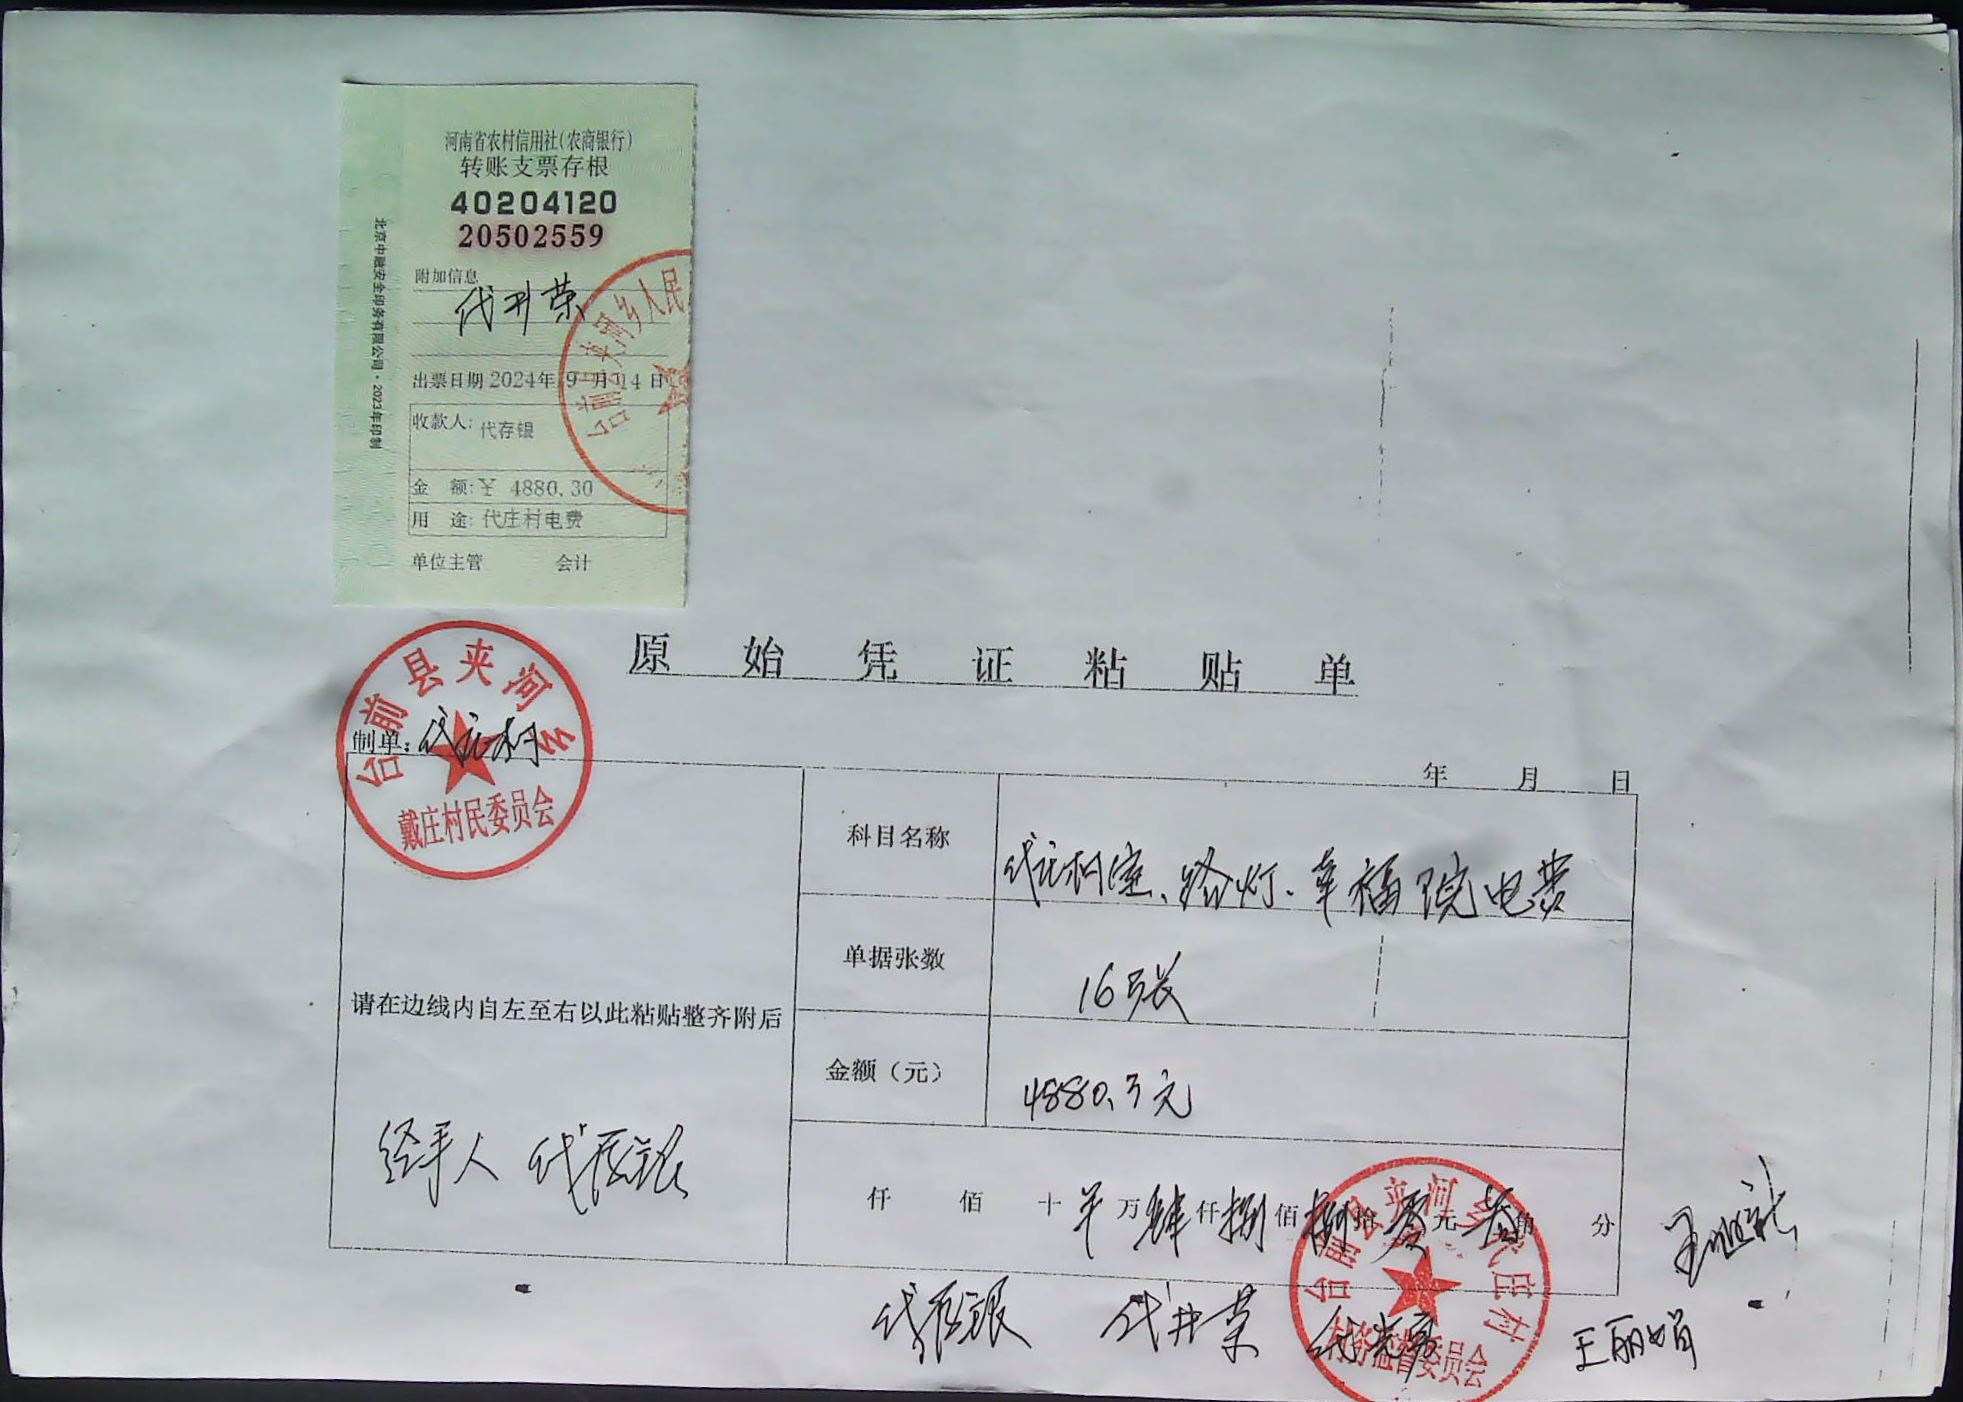 河南省农村信用社(农商银行)
转账支票存根
40204120
20502559
附加信息
代井荣
出票日期 2024年 9 月 14 日
收款人: 代存银
金 额: ¥ 4880.30
用 途: 代庄村电费
单位主管 会计
北京中融安全印务有限公司·2023年印制
台前县夹河乡人民
原始凭证粘贴单
制单: 代庄村
台前县夹河乡
戴庄村民委员会
年 月 日
科目名称 代庄村室、路灯、幸福院电费
单据张数 16张
请在边线内自左至右以此粘贴整齐附后
金额(元) 4880.3元
经手人 代存银
仟 佰 十 万 肆仟 捌佰 捌拾 零元 叁角 分
台前县夹河乡代庄村
村务监督委员会
代存银 代井荣
王丽娟